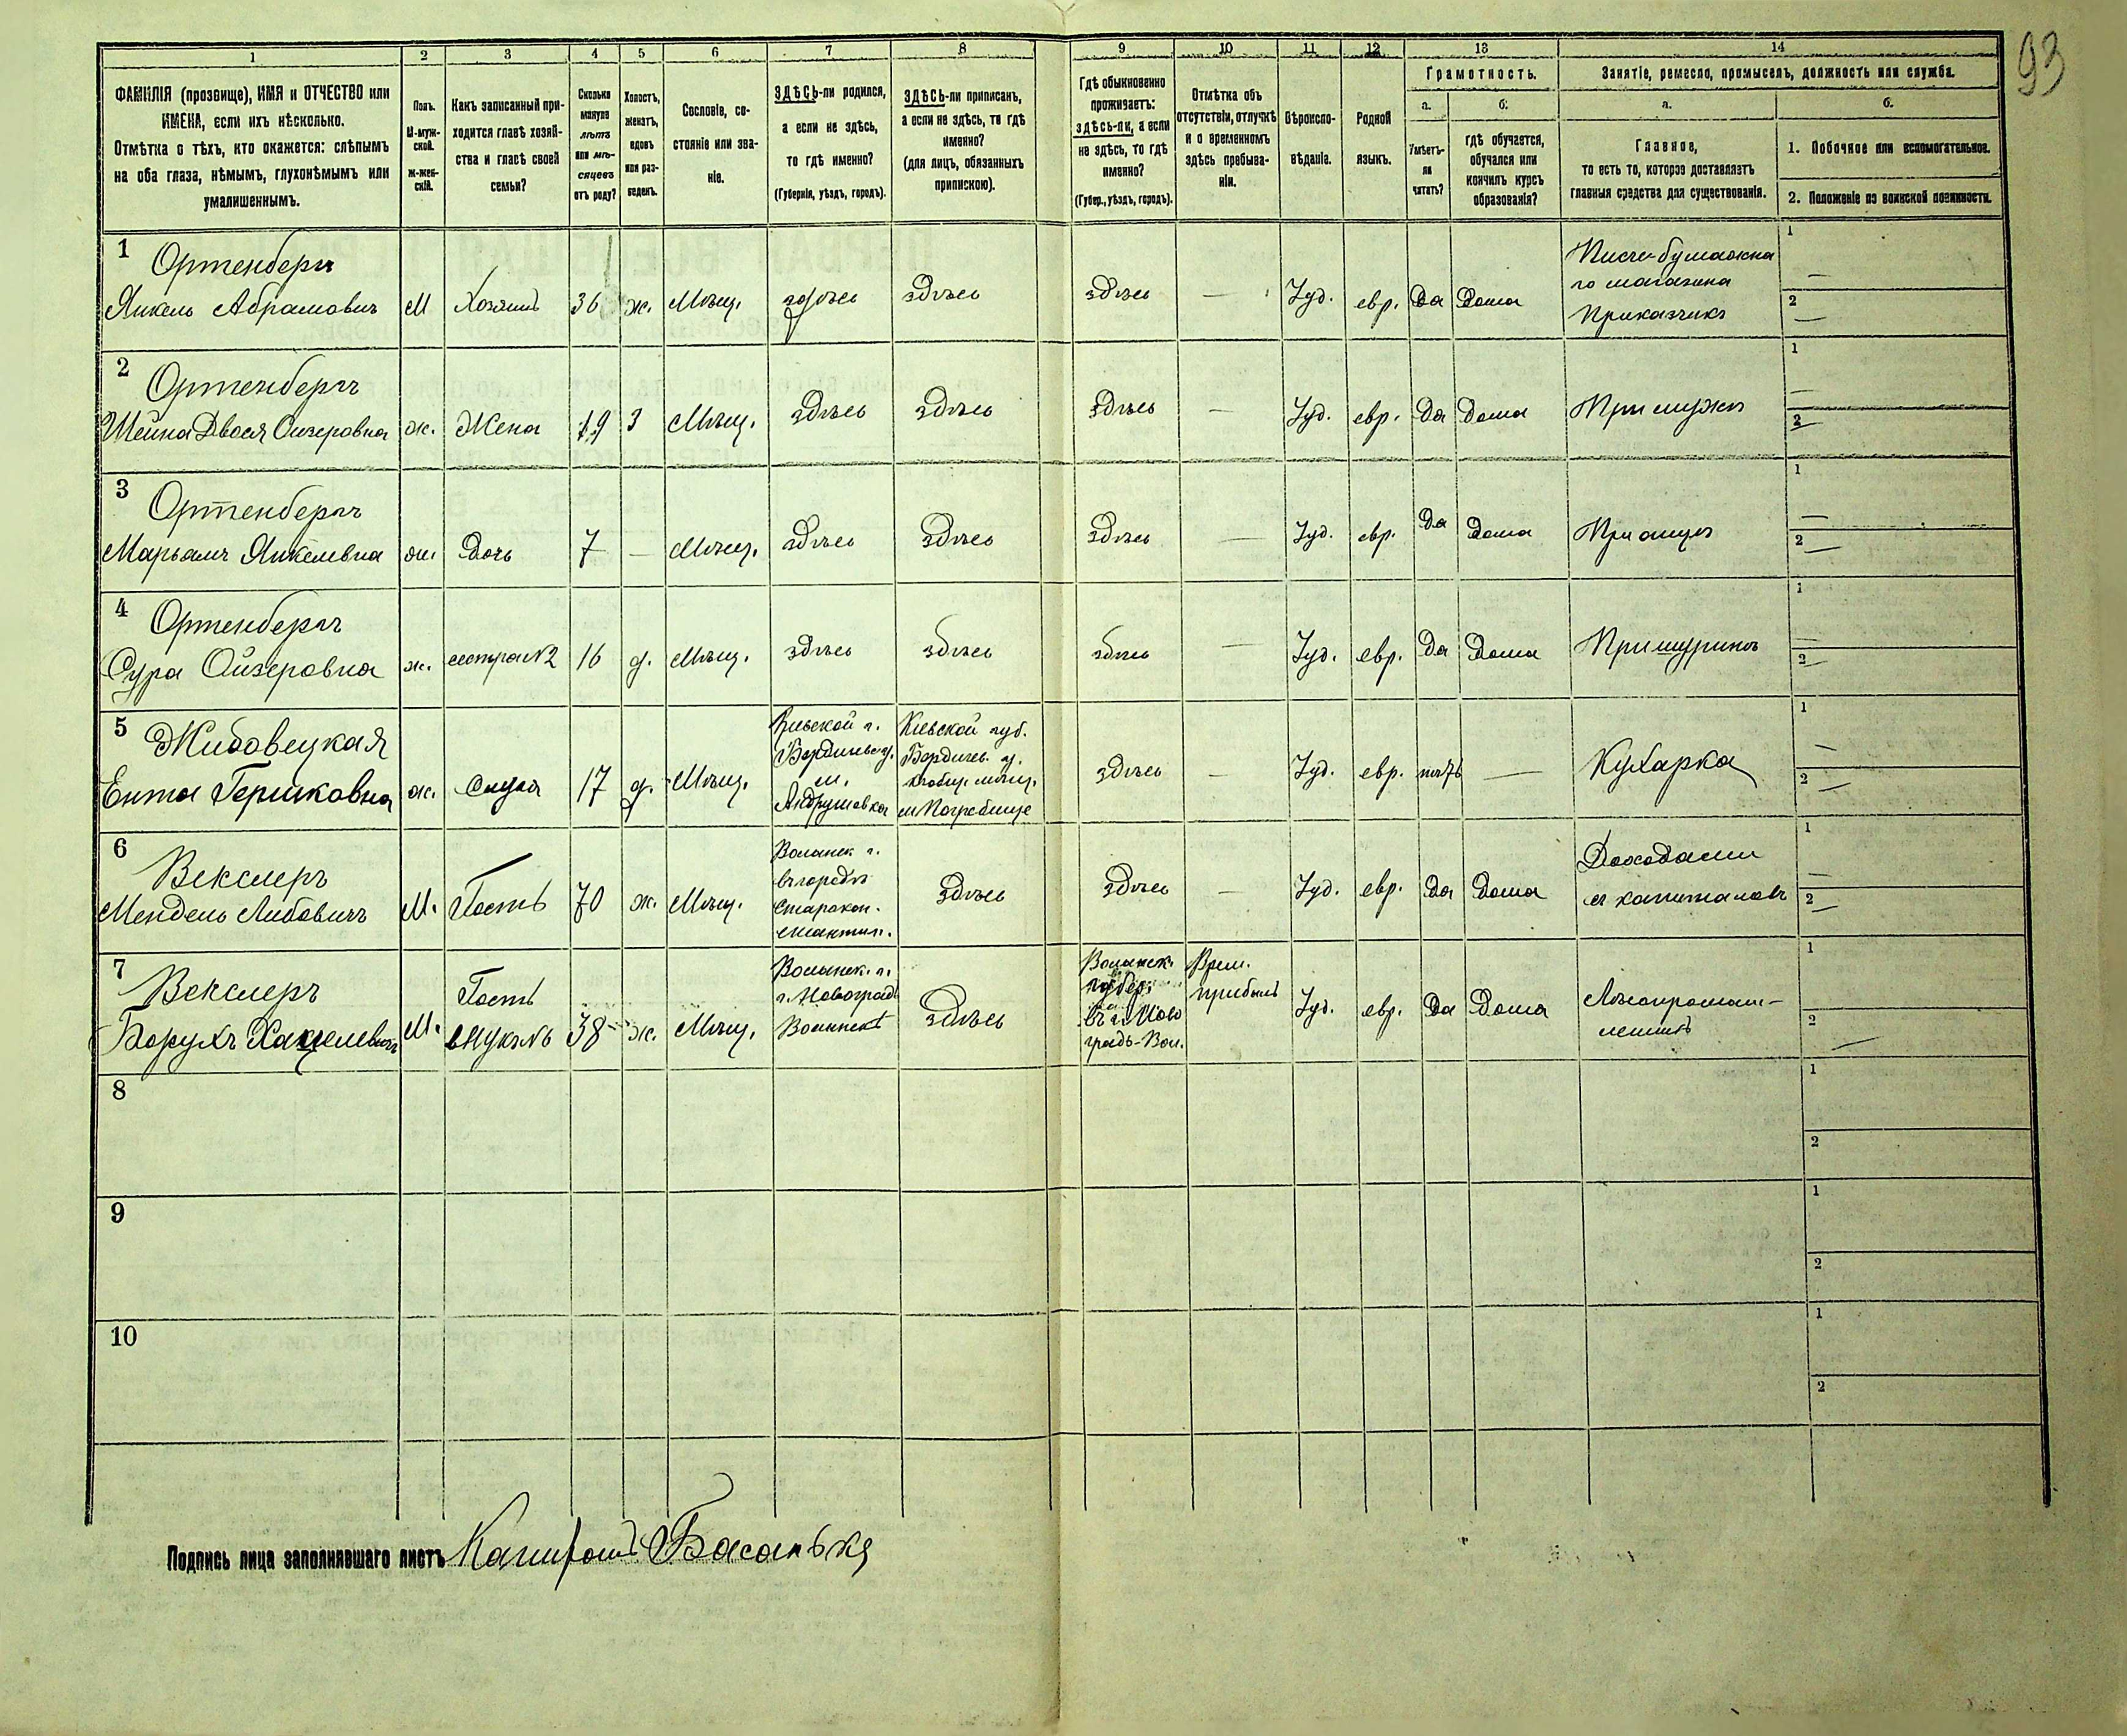 93
1 2 3 4 5 6 7 8 9 10 11 12 13 14
ФАМИЛІЯ (прозвище), ИМЯ и ОТЧЕСТВО или
ИМЕНА, если ихъ нѣсколько.
Отмѣтка о тѣхъ, кто окажется: слѣпымъ
на оба глаза, нѣмымъ, глухонѣмымъ или
умалишеннымъ.
Полъ.
М-муж-
ской.
Ж-жен-
скій.
Какъ записанный при-
ходится главѣ хозяй-
ства и главѣ своей
семьи?
Сколько
минуло
лѣтъ
или мѣ-
сяцевъ
отъ роду?
Холостъ,
женатъ,
вдовъ
или раз-
веденъ.
Сословіе, со-
стояніе или зва-
ніе.
ЗДѢСЬ-ли родился,
а если не здѣсь,
то гдѣ именно?
(Губернія, уѣздъ, городъ).
ЗДѢСЬ-ли приписанъ,
а если не здѣсь, то гдѣ
именно?
(для лицъ, обязанныхъ
припискою).
Гдѣ обыкновенно
проживаетъ:
здѣсь-ли, а если
не здѣсь, то гдѣ
именно?
(Губер., уѣздъ, городъ).
Отмѣтка объ
отсутствіи, отлучкѣ
и о временномъ
здѣсь пребыва-
ніи.
Вѣроиспо-
вѣданіе.
Родной
языкъ.
Грамотность.
а.
Умѣетъ-
ли
читать?
б.
гдѣ обучается,
обучался или
кончилъ курсъ
образованія?
Занятіе, ремесло, промыселъ, должность или служба.
а.
Главное,
то есть то, которое доставляетъ
главныя средства для существованія.
б.
1. Побочное или вспомогательное.
2. Положеніе по воинской повинности.
1 Ортенбергъ
Янкель Абрамовичъ М Хозяинъ 36 ж. Мѣщ. здѣсь здѣсь здѣсь — Іуд. евр. Да Дома
Писче-бумажна
го магазина
Приказчикъ
1 —
2 —
2 Ортенбергъ
Шейна Двося Ойзеровна ж. Жена 29 З Мѣщ. здѣсь здѣсь здѣсь — Іуд. евр. Да Дома При мужѣ
1 —
2 —
3 Ортенбергъ
Марьямъ Янкелевна ж. Дочь 7 — Мѣщ. здѣсь здѣсь здѣсь — Іуд. евр. Да Дома При отцѣ
1 —
2 —
4 Ортенбергъ
Сура Ойзеровна ж. сестра №2 16 д. Мѣщ. здѣсь здѣсь здѣсь — Іуд. евр. Да Дома При шуринѣ
1 —
2 —
5 Жидовецкая
Ента Гершковна ж. Слуга 17 д. Мѣщ.
Кіевской г.
Бердичевс. у.
м.
Андрушовка
Кіевской губ.
Бердичев. у.
м. Погребище
здѣсь — Іуд. евр. нѣтъ — Кухарка
1 —
2 —
6 Векслеръ
Мендель Либовичъ М. Гость 70 ж. Мѣщ.
Волынск г.
въ городѣ
Старокон-
стантин.
здѣсь здѣсь — Іуд. евр. Да Дома
Доходами
съ капиталовъ
1 —
2 —
7 Векслеръ
Борухъ Хацкелевичъ М.
Гость
внукъ №6
38 ж. Мѣщ.
Волынск. г.
г. Новоград
Волынскъ
Здѣсь
Волынск.
губер.
въ г. Ново
градъ-Вол.
Врем.
прибылъ
Іуд. евр. Да Дома
Лѣсопромыш-
ленникъ
1
2 —
8
1
2
9
1
2
10
1
2
Подпись лица заполнявшаго листъ